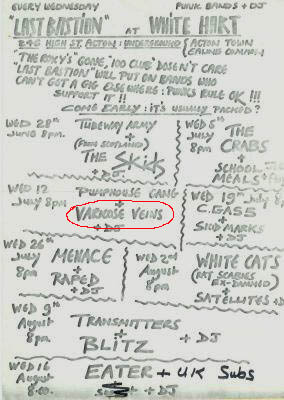 EVERY WEDNESDAY PUNK BANDS + DJ
"LAST BASTION" AT WHITE HART
246 HIGH ST. ACTON: UNDERGROUND { ACTON TOWN
EALING COMMON
"THE ROXY'S" GONE, '100 CLUB' DOSEN'T CARE
"LAST BASTION" WILL PUT ON BANDS WHO
CAN'T GET A GIG ELSEWHERE: PUNKS RULE OK !!!
SUPPORT IT !!
COME EARLY: IT'S USUALLY PACKED?
WED 28TH
JUNE 8pm.
TUBEWAY ARMY
+
(FROM SCOTLAND)
THE SKIDS
+ DJ
WED 5TH
JULY
8pm
THE
CRABS
+
SCHOOL
MEALS
WED 12
JULY 8pm
PUMPHOUSE GANG
+
VARICOSE VEINS
+ DJ
WED 19TH JULY 8p
C.GAS 5
+
SKID MARKS
+ DJ
WED 26TH
JULY
8pm
MENACE
+
RAPED + DJ
WED 2nd
August
8pm
WHITE CATS
(RAT SCABIES
EX-DAMNED)
+
SATELLITES + D
WED 9TH
August
8pm
TRANSMITTERS
+
BLITZ + DJ
WED 16
August
8.00.
EATER + UK Subs
+ DJ